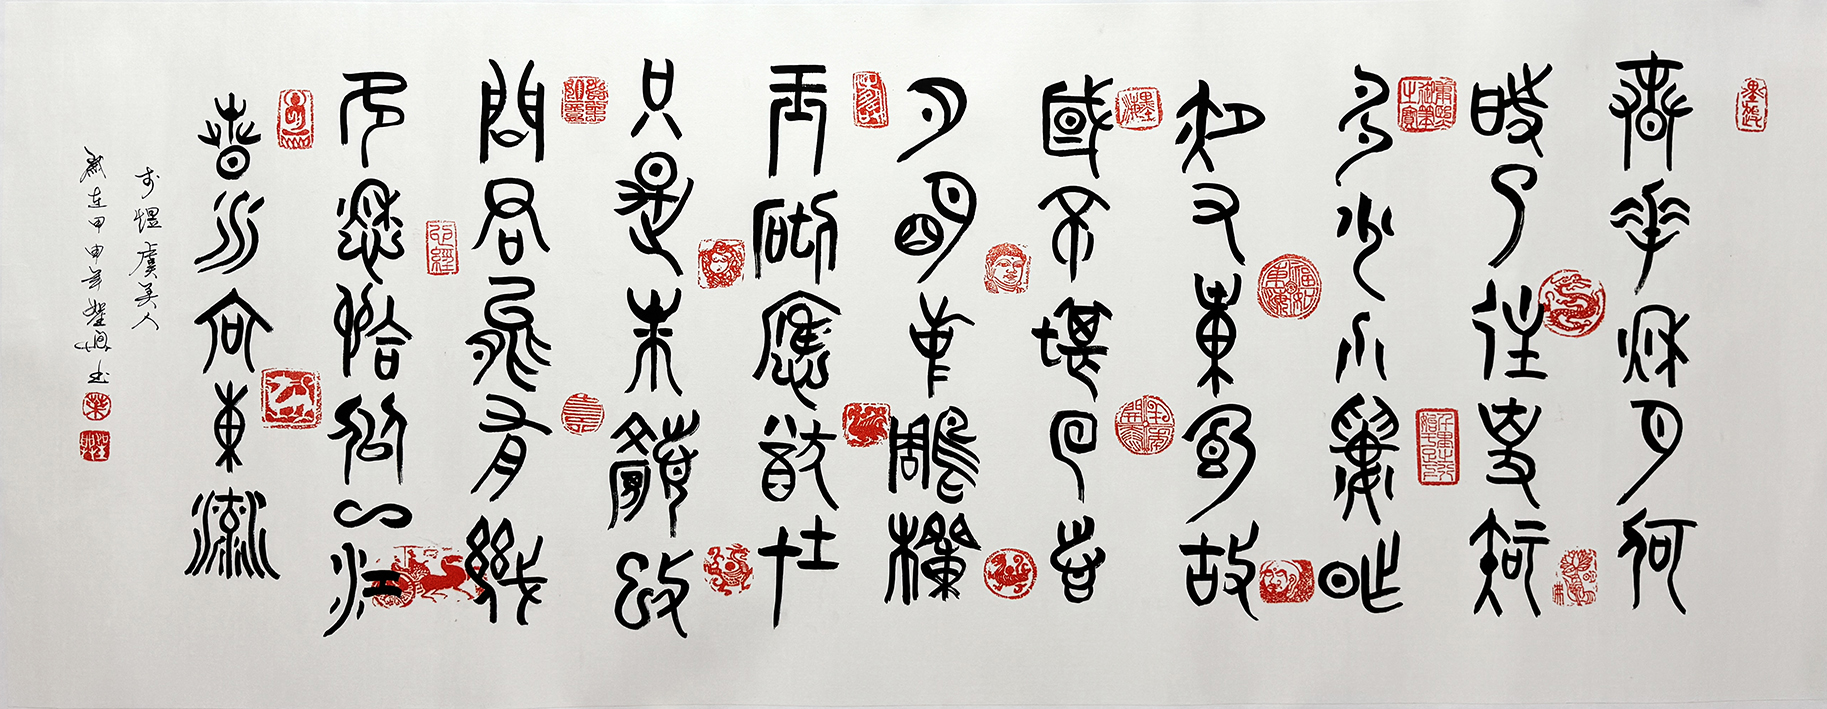 春花秋月何
時了往事知
多少小樓昨
夜又東風故
國不堪回首
月明中雕欄
玉砌應猶在
只是朱顏改
問君能有幾
多愁恰似一江
春水向東流
李煜虞美人
歲在甲申年書
心經